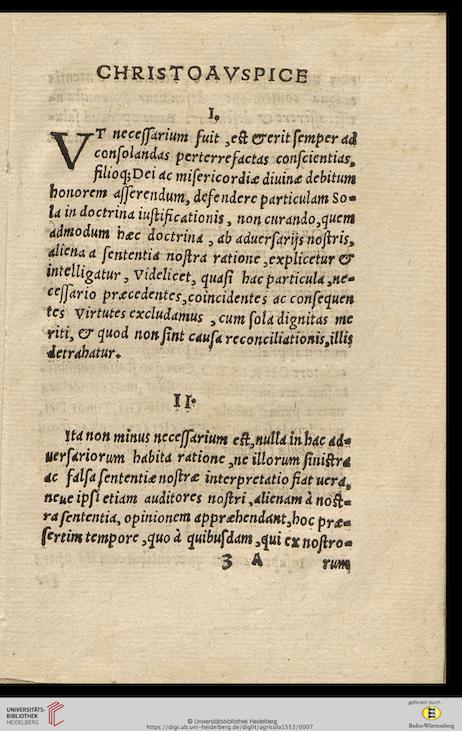 CHRISTO AVSPICE
I.
VT necessarium fuit, est & erit semper ad
consolandas perterrefactas conscientias,
filioq; Dei ac misericordiæ diuinæ debitum
honorem asserendum, defendere particulam So-
la in doctrina iustificationis, non curando, quem
admodum hæc doctrina, ab aduersarijs nostris,
aliena a sententia nostra ratione, explicetur &
intelligatur, Videlicet, quasi hac particula, ne-
cessario præcedentes, coincidentes ac consequen
tes Virtutes excludamus, cum sola dignitas me
riti, & quod non sint causa reconciliationis, illis
detrahatur.
II.
Ita non minus necessarium est, nulla in hac ad-
uersariorum habita ratione, ne illorum sinistra
ac falsa sententiæ nostræ interpretatio fiat uera,
neue ipsi etiam auditores nostri, alienam à nost-
ra sententia, opinionem appræhendant, hoc præ-
sertim tempore, quo à quibusdam, qui ex nostro-
3 A rum
UNIVERSITÄTS-
BIBLIOTHEK
HEIDELBERG
© Universitätsbibliothek Heidelberg
https://digi.ub.uni-heidelberg.de/diglit/agricola1553/0007
gefördert durch
Baden-Württemberg